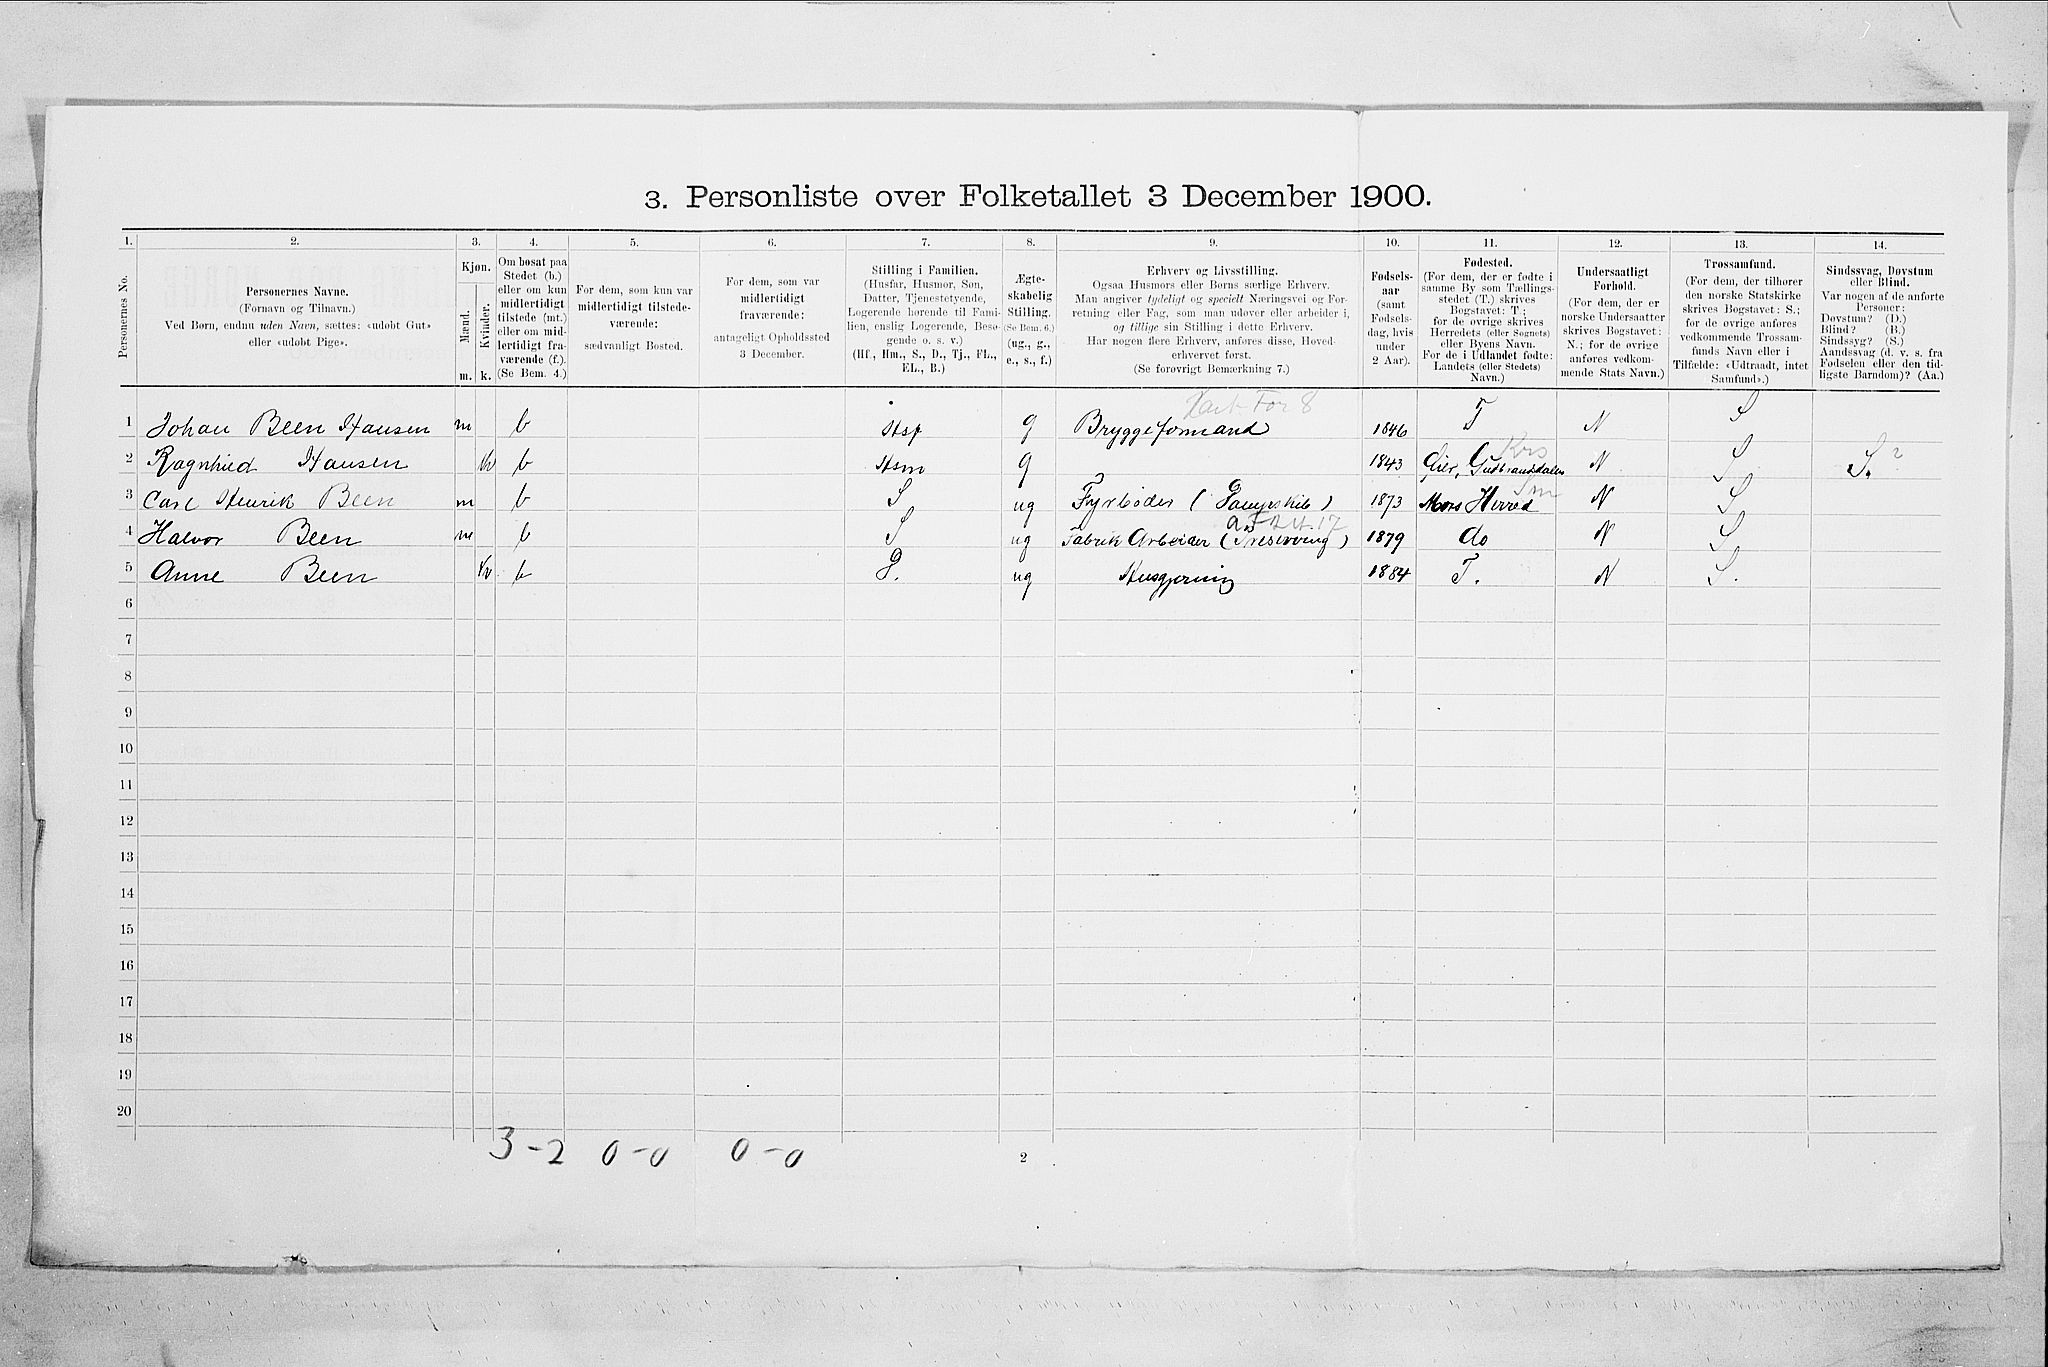 3. Personliste over Folketallet 3 December 1900.
1. 2. 3. 4. 5. 6. 7. 8. 9. 10. 11. 12. 13. 14.
Personernes No.
Personernes Navne.
(Fornavn og Tilnavn.)
Ved Børn, endnu uden Navn, sættes: «udøbt Gut»
eller «udøbt Pige».
Kjøn.
Mænd.
Kvinder.
m. k.
Om bosat paa
Stedet (b.)
eller om kun
midlertidigt
tilstede (mt.)
eller om mid-
lertidigt fra-
værende (f.).
(Se Bem. 4.)
For dem, som kun var
midlertidigt tilstede-
værende:
sædvanligt Bosted.
For dem, som var
midlertidigt
fraværende:
antageligt Opholdssted
3 December.
Stilling i Familien.
(Husfar, Husmor, Søn,
Datter, Tjenestetyende,
Logerende hørende til Fami-
lien, enslig Logerende, Besø-
gende o. s. v.)
(Hf., Hm., S., D., Tj., FL.,
EL., B.)
Ægte-
skabelig
Stilling.
(Se Bem. 6.)
(ug., g.,
e., s., f.)
Erhverv og Livsstilling.
Ogsaa Husmors eller Børns særlige Erhverv.
Man angiver tydeligt og specielt Næringsvei og For-
retning eller Fag, som man udøver eller arbeider i,
og tillige sin Stilling i dette Erhverv.
Har nogen flere Erhverv, anføres disse, Hoved-
erhvervet først.
(Se forøvrigt Bemærkning 7.)
Fødsels-
aar
(samt
Fødsels-
dag, hvis
under
2 Aar).
Fødested.
(For dem, der er fødte i
samme By som Tællings-
stedet (T.) skrives
Bogstavet: T.;
for de øvrige skrives
Herredets (eller Sognets)
eller Byens Navn.
For de i Udlandet fødte:
Landets (eller Stedets)
Navn.)
Undersaatligt
Forhold.
(For dem, der er
norske Undersaatter
skrives Bogstavet:
N.; for de øvrige
anføres vedkom-
mende Stats Navn.)
Trossamfund.
(For dem, der tilhører
den norske Statskirke
skrives Bogstavet: S.;
for de øvrige anføres
vedkommende Trossam-
funds Navn eller i
Tilfælde: «Udtraadt, intet
Samfund».)
Sindssvag, Døvstum
eller Blind.
Var nogen af de anførte
Personer:
Døvstum? (D.)
Blind? (B.)
Sindssyg? (S.)
Aandssvag (d. v. s. fra
Fødselen eller den tid-
ligste Barndom)? (Aa.)
1 Johan Been Hansen m b g Bryggeformand 1846 T N S
2 Ragnhild Hansen b g 1843 Gudbrandsdalen N S S. ?
3 Carl Henrik Been m b S ug Fyrbøder 1873 N S
4 Halvor Been m b S ug Fabrik Arbeider 1879 do N S
5 Anne Been b D. ug Husgjerning 1884 T. N S.
6
7
8
9
10
11
12
13
14
15
16
17
18
19
20
3-2 0-0 0-0
2